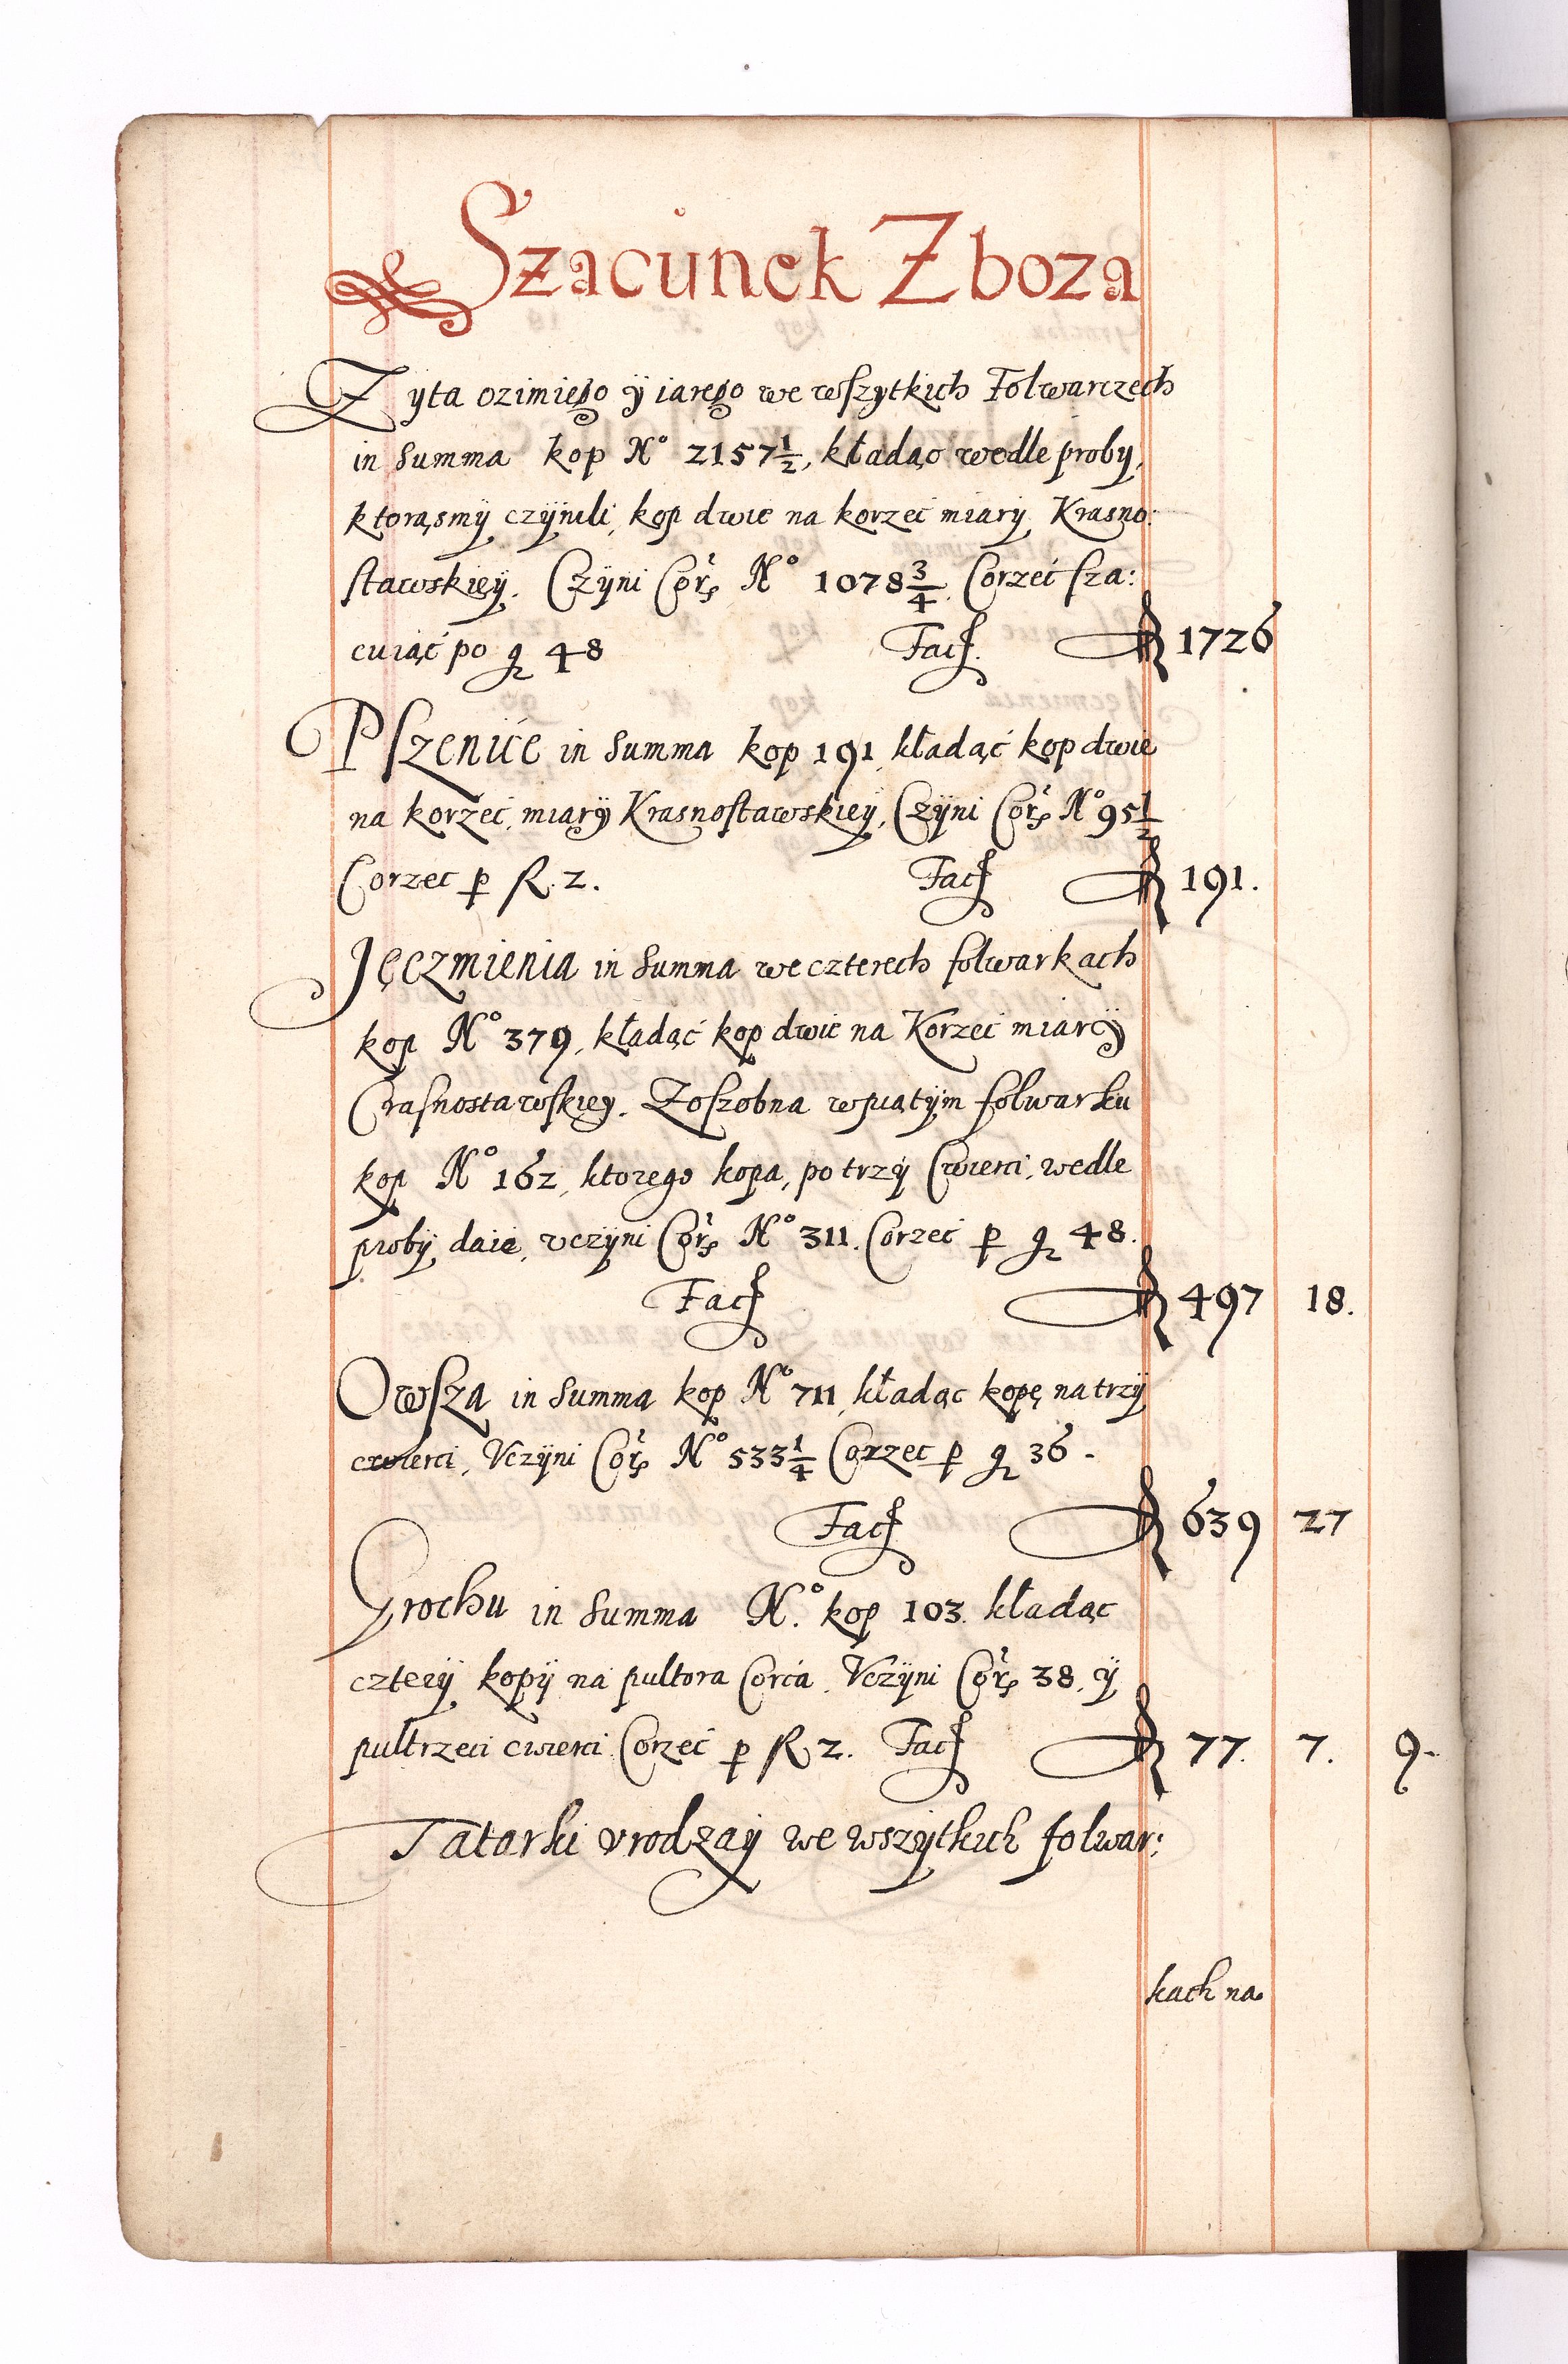 Szacunek Zboza
Zyta ozimiego ÿ iarego we wszytkich Folwarczech
in Summa kop No 2157 1/2, kładąc wedle proby,
ktorąsmÿ czÿnili, kop dwie na korzec miarÿ Krasno:
stawskieÿ. Czÿni Cor: No 1078 3/4. Corzec sza:
cuiąć po g 48 Facit 1726
Pszenice in Summa kop 191, kładąć kop dwie
na korzec, miarÿ Krasnostawskieÿ, Czÿni Cor: No 95 1/2
Corzec p R. 2. Facit 191.
Jęczmienia in Summa we czterech folwarkach
kop No 379, kładąć kop dwie na Korzec miarÿ
Crasnostawskieÿ. Zoszobna w piątÿm folwarku
kop No 162, ktorego kopa, po trzÿ Cwierci, wedle
probÿ daie, vczÿni Cor: No 311. Corzec p g 48.
Facit 497 18.
Owsza in Summa kop No 711, kładąc kopę na trzÿ
cwierci, Vczÿni Cor: No 533 1/4 Corzec p g 36.
Facit 639 27
Grochu in Summa No. kop 103. kładąc
czterÿ kopÿ na pultora Corca. Vczÿni Cor: 38. ÿ
pultrzeci cwierci Corzec p R 2. Facit 77. 7. 9.
Tatarki vrodzaÿ we wszÿtkich folwar:
kach na